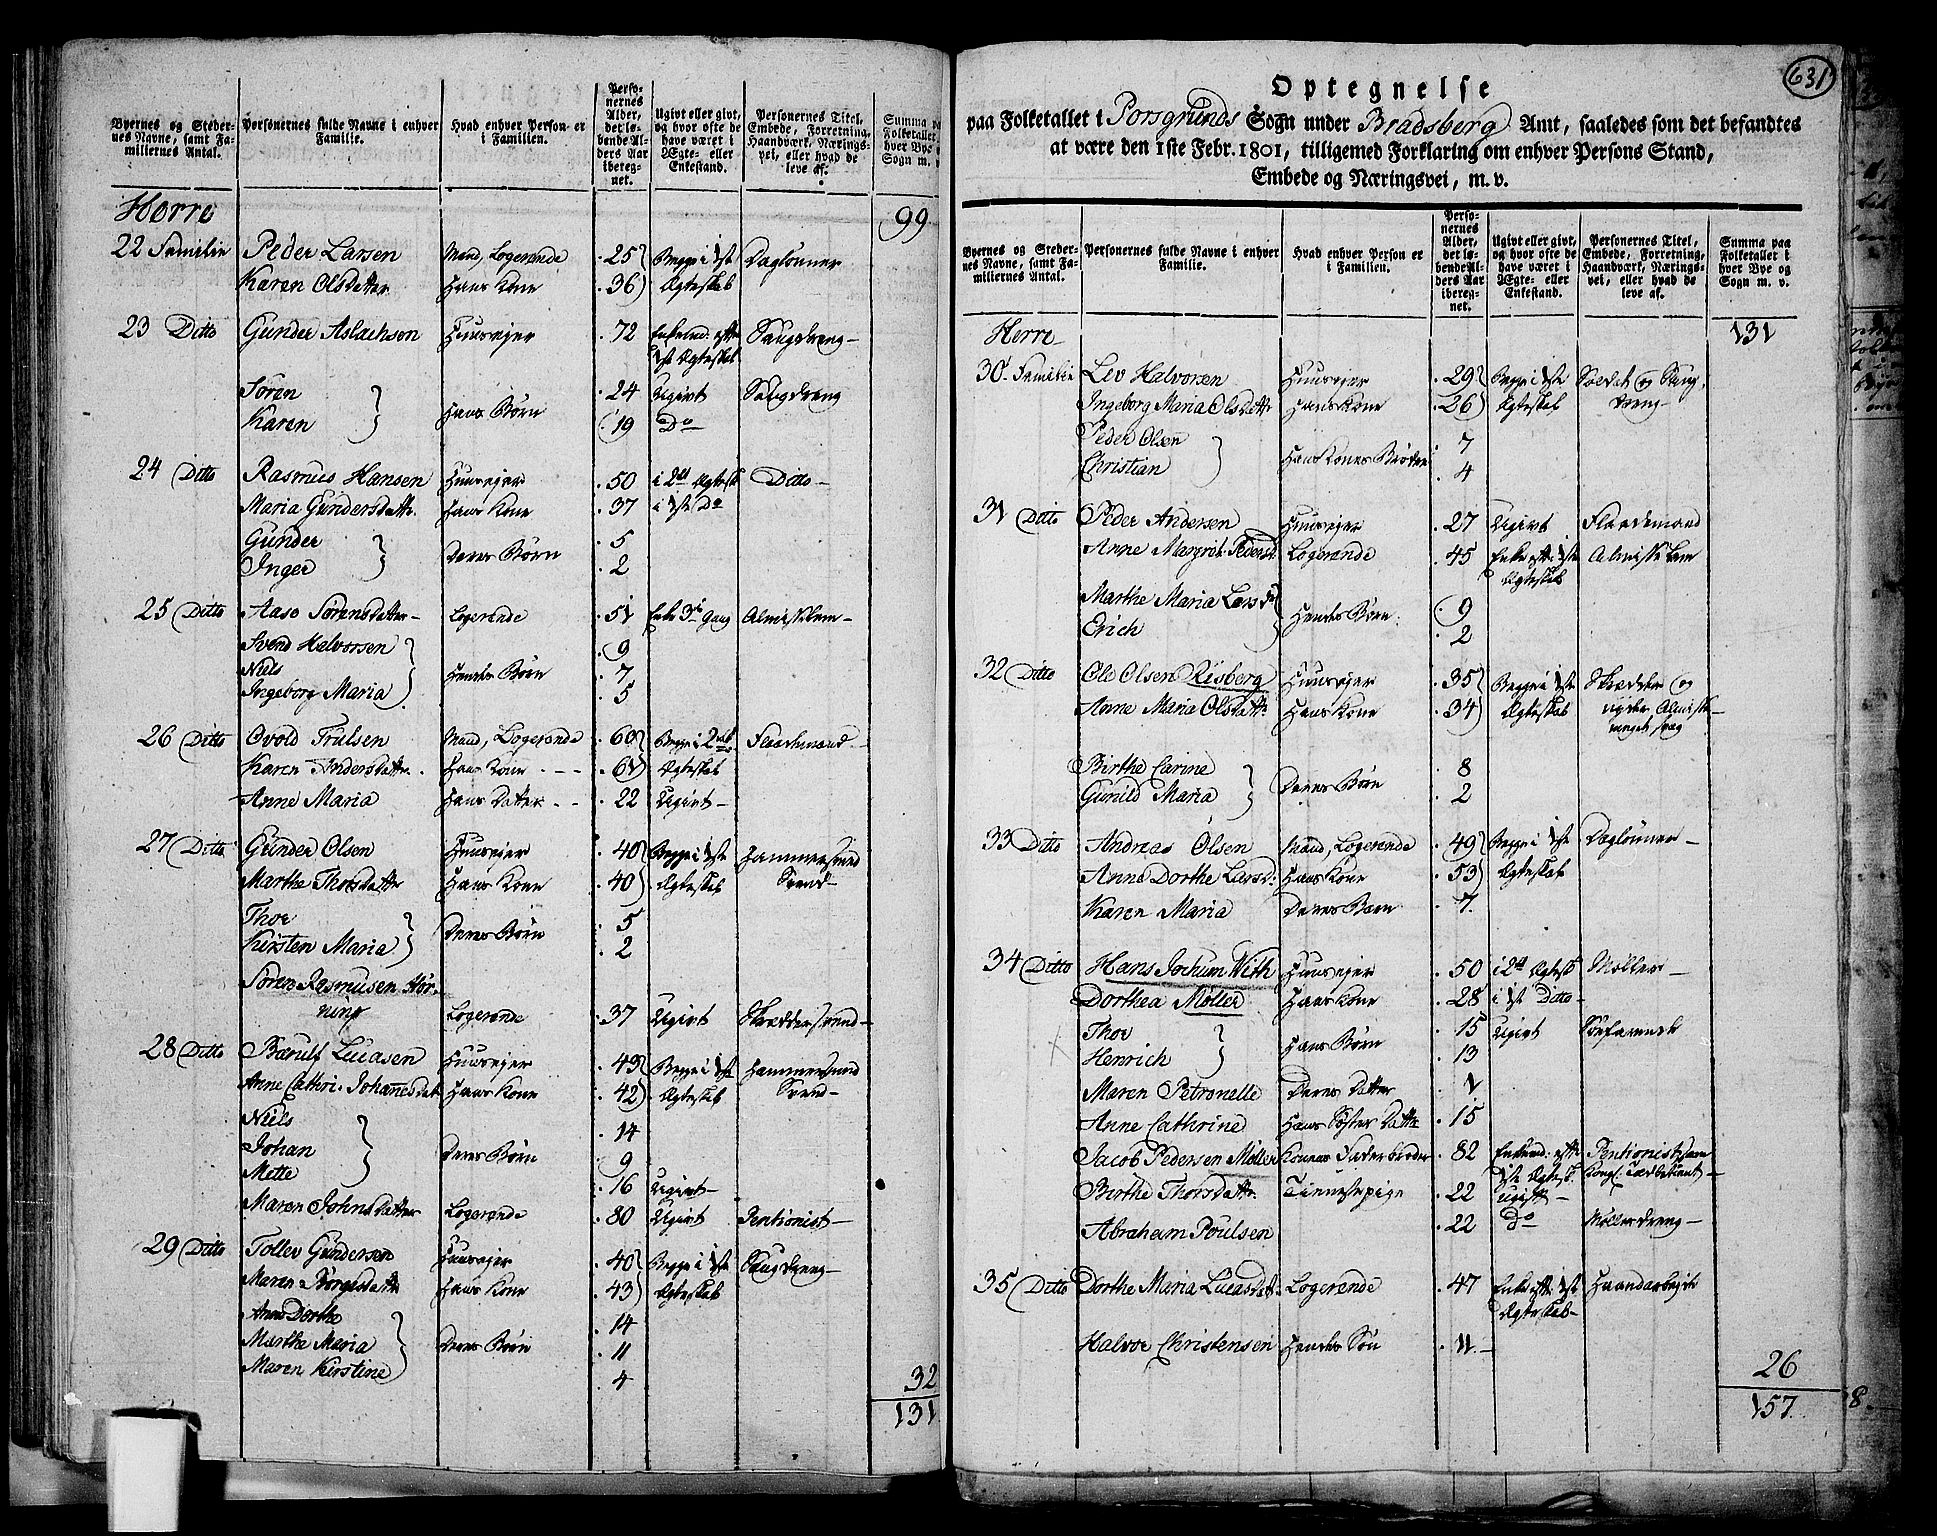 Byernes og Steder-
nes Navne, samt Fa-
miliernes Antal.
Personernes fulde Navne i enhver
Familie.
Hvad enhver Person er
i Familien.
Perso-
nernes
Alder,
det lø-
bende Al-
ders Aar
ibereg-
net.
Ugivt eller givt,
og hvor ofte de
have været i
Ægte- eller
Enkestand.
Personernes Titel,
Embede, Forretning,
Haandværk, Nærings-
vei, eller hvad de
leve af.
Summa
Folketallet
hver Bye
Sogn m. v.
Herre 99
22 Familie Peder Larsen Mand, Logerende 25 Begge i 1ste Daglønner
Karen Olsdatter Hans Kone 36 Ægteskab
23 Ditto Gunder Aslachson Huusejer 72 Enkemd: efter Saugdreng
1ste Ægteskab
Søren 24 Ugivt Saugdreng
Karen Hans Børn 19 Do
24 Ditto Rasmus Hansen Huusejer 50 i 2det Ægtesk Ditto
Maria Gundersdattr. Hans Kone 37 i 1ste Do
Gunder 5
Inger Deres Børn 2
25 Ditto Aase Sørensdatter Logerende 51 Enke 3de Gang Almisselem
Svend Halvorsen 9
Niels Hendes Børn 7
Ingeborg Maria 5
26 Ditto Evold Trulsen Mand, Logerende 60 Begge i 2det Flaademand
Karen Andersdattr. Hans Kone 61 Ægteskab
Anne Maria Hans Datter 22 Ugivt
27 Ditto Gunder Olsen Huusejer 40 Begge i 1ste Hammersmed
Marthe Thorsdattr Hans Kone 40 Ægteskab Svend
Thor 5
Kirsten Maria Deres Børn 2
Søren Rasmusen Hør-
ning Logerende 37 Ugivt Skræddersvend
28 Ditto Bærulf Lucasen Huusejer 43 Begge i 1ste Hammersmed
Anne Cathri. Johanesdat Hans Kone 42 Ægteskab Svend
Niels 14
Johan Deres Børn 9
Mette 16 Ugivt
Maren Johnsdatter Logerende 80 Ugivt Pentionist
29 Ditto Tollev Gundersen Huusejer 40 Begge i 1ste Saugdreng
Maren Børgesdattr Hans Kone 43 Ægteskab
Anne Dorthe 14
Marthe Maria Deres Børn 11
Maren Kirstine 4
32
131
631
Optegnelse
paa Folketallet i Porsgrunds Sogn under Bradsberg Amt, saaledes som det befandtes
at være den 1ste Febr. 1801, tilligemed Forklaring om enhver Persons Stand,
Embede og Næringsvei, m. v.
Byernes og Steder-
nes Navne, samt Fa-
miliernes Antal.
Personernes fulde Navne i enhver
Familie.
Hvad enhver Person er
i Familien.
Perso-
nernes
Alder,
det lø-
bende Al-
ders Aar
ibereg-
net.
Ugivt eller givt,
og hvor ofte de
have været i
Ægte- eller
Enkestand.
Personernes Titel,
Embede, Forretning,
Haandværk, Nærings-
vei, eller hvad de
leve af.
Summa paa
Folketallet i
hver Bye og
Sogn m. v.
Herre 131
30 Familie Lev Halvorsen Huusejer 29 Begge i 1ste Soldat og Saug-
Ingeborg Maria Olsdattr Hans Kone 26 Ægteskab dreng
Peder Olsen 7
Christian Hans Kones Brødre 4
31 Ditto Peder Andersen Huusejer 27 Ugivt Flaademand
Anne Margret Pedersd. Logerende 45 Enke eftr. 1ste Almisselem
Ægteskab
Marthe Maria Larsdr 9
Erich Hendes Børn 2
32 Ditto Ole Olsen Risberg Huusejer 35 Begge i 1ste Skrædder og
Anne Maria Olsdattr. Hans Kone 34 Ægteskab nyder Almisse
Birthe Carine 8
Gunild Maria Deres Børn 2
33 Ditto Andreas Olsen Mand, Logerende 49 Begge i 1ste Daglønner
Anne Dorthe Larsd. Hans Kone 53 Ægteskab
Karen Maria Deres Barn 7
34 Ditto Hans Jochum With Huusejer 50 i 2det Ægtesk Møller
Dorthea Møller Hans Kone 28 i 1ste Ditto
Thor 15 Ugivt Søefarende
Henrich Hans Børn 13
Maren Petronelle Deres Datter 1
Anne Cathrine Hans Søster Datter 15
Jacob Pedersen Møller Konens Faderbroder 82 Enkemd: eftr Pentionist som
1ste Ægtesk. Kongl. Toldbetient
Birthe Thorsdattr. Tienestepige 22 Ugift
Abraham Poulsen 22 Do Møllerdreng
35 Ditto Dorthe Maria Lucasdattr Logerende 47 Enke eftr. 1ste Haandarbejde
Ægteskab
Halvor Christensen Hendes Søn 11
26
157